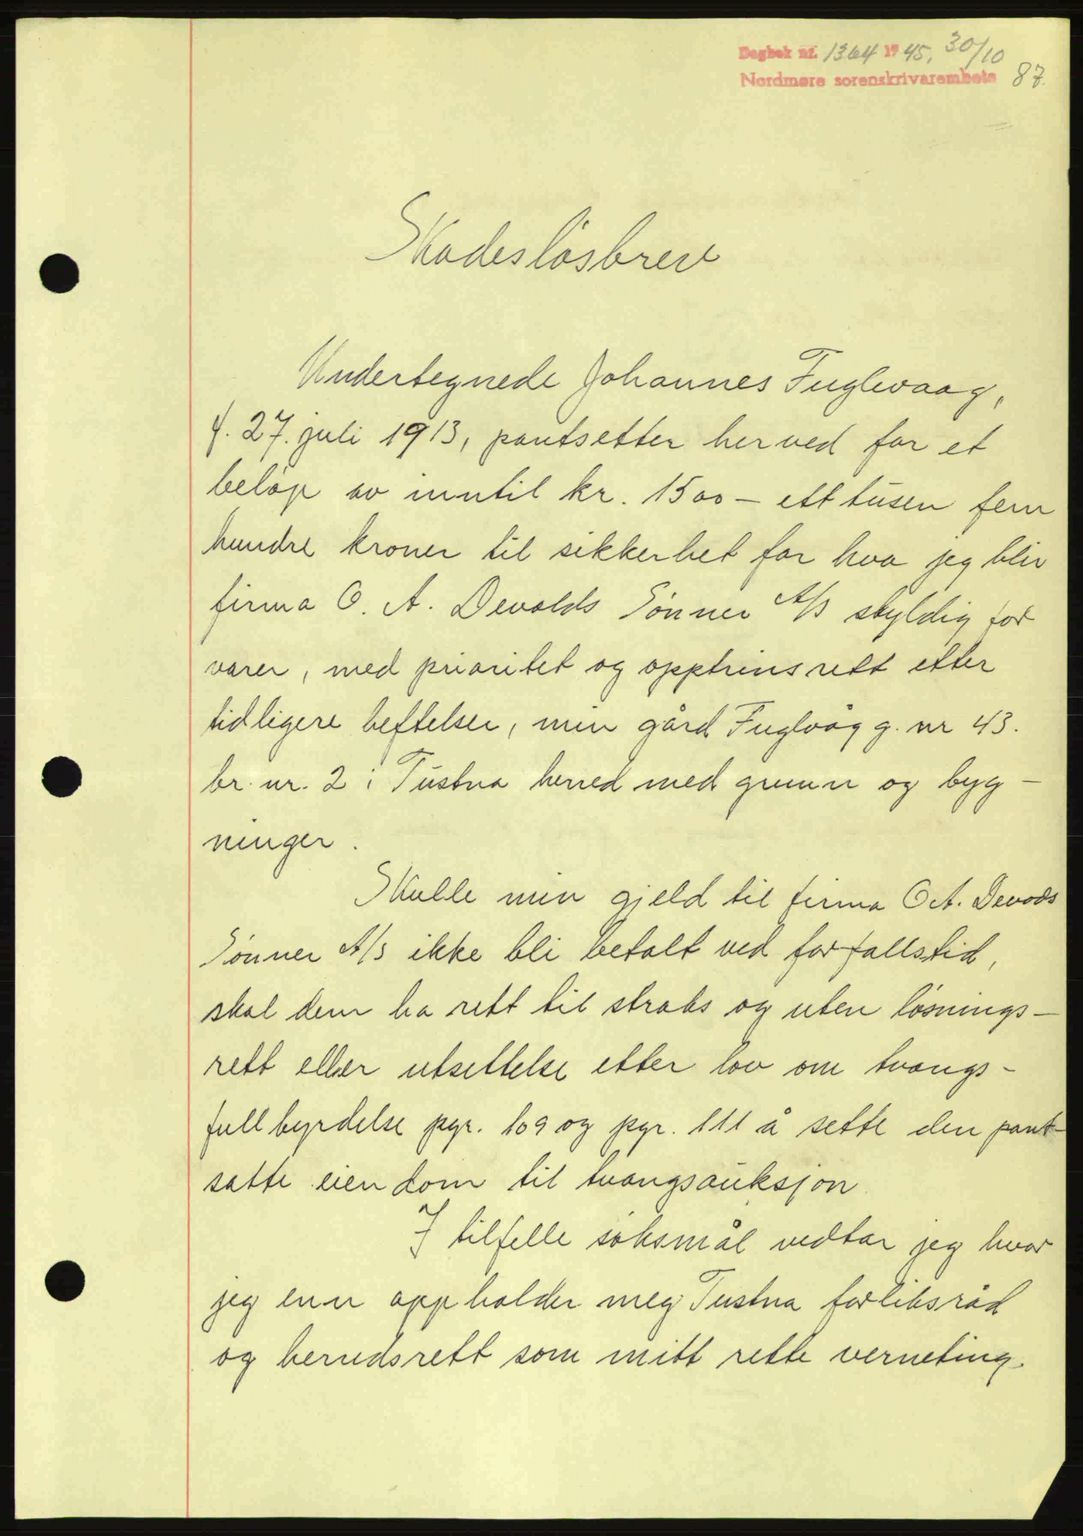 Dagbok nr. 1364 1945, 30/10
Nordmøre sorenskrivarembete 87.
Skadesløsbrev
Undertegnede Johannes Fuglevaag,
f. 27. juli 1913, pantsetter herved for et
beløp av inntil kr. 1500 – ett tusen fem
hundre kroner til sikkerhet for hva jeg blir
firma O. A. Devolds Sønner A/S skyldig for
varer, med prioritet og opptrinsrett etter
tidligere heftelser, min gård Fuglvåg g. nr 43.
br. nr. 2 i Tustna herred med grunn og byg–
ninger.
Skulle min gjeld til firma O A. Devods
Sønner A/S ikke bli betalt ved forfallstid,
skal dem ha rett til straks og uten løsnings–
rett eller utsettelse etter lov om tvangs–
fullbyrdelse pgr. 109 og pgr. 111 å sette den pant–
satte eiendom til tvangsauksjon
I tilfelle søksmål vedtar jeg hvor
jeg enn oppholder meg Tustna forliksråd
og herredsrett som mitt rette verneting.